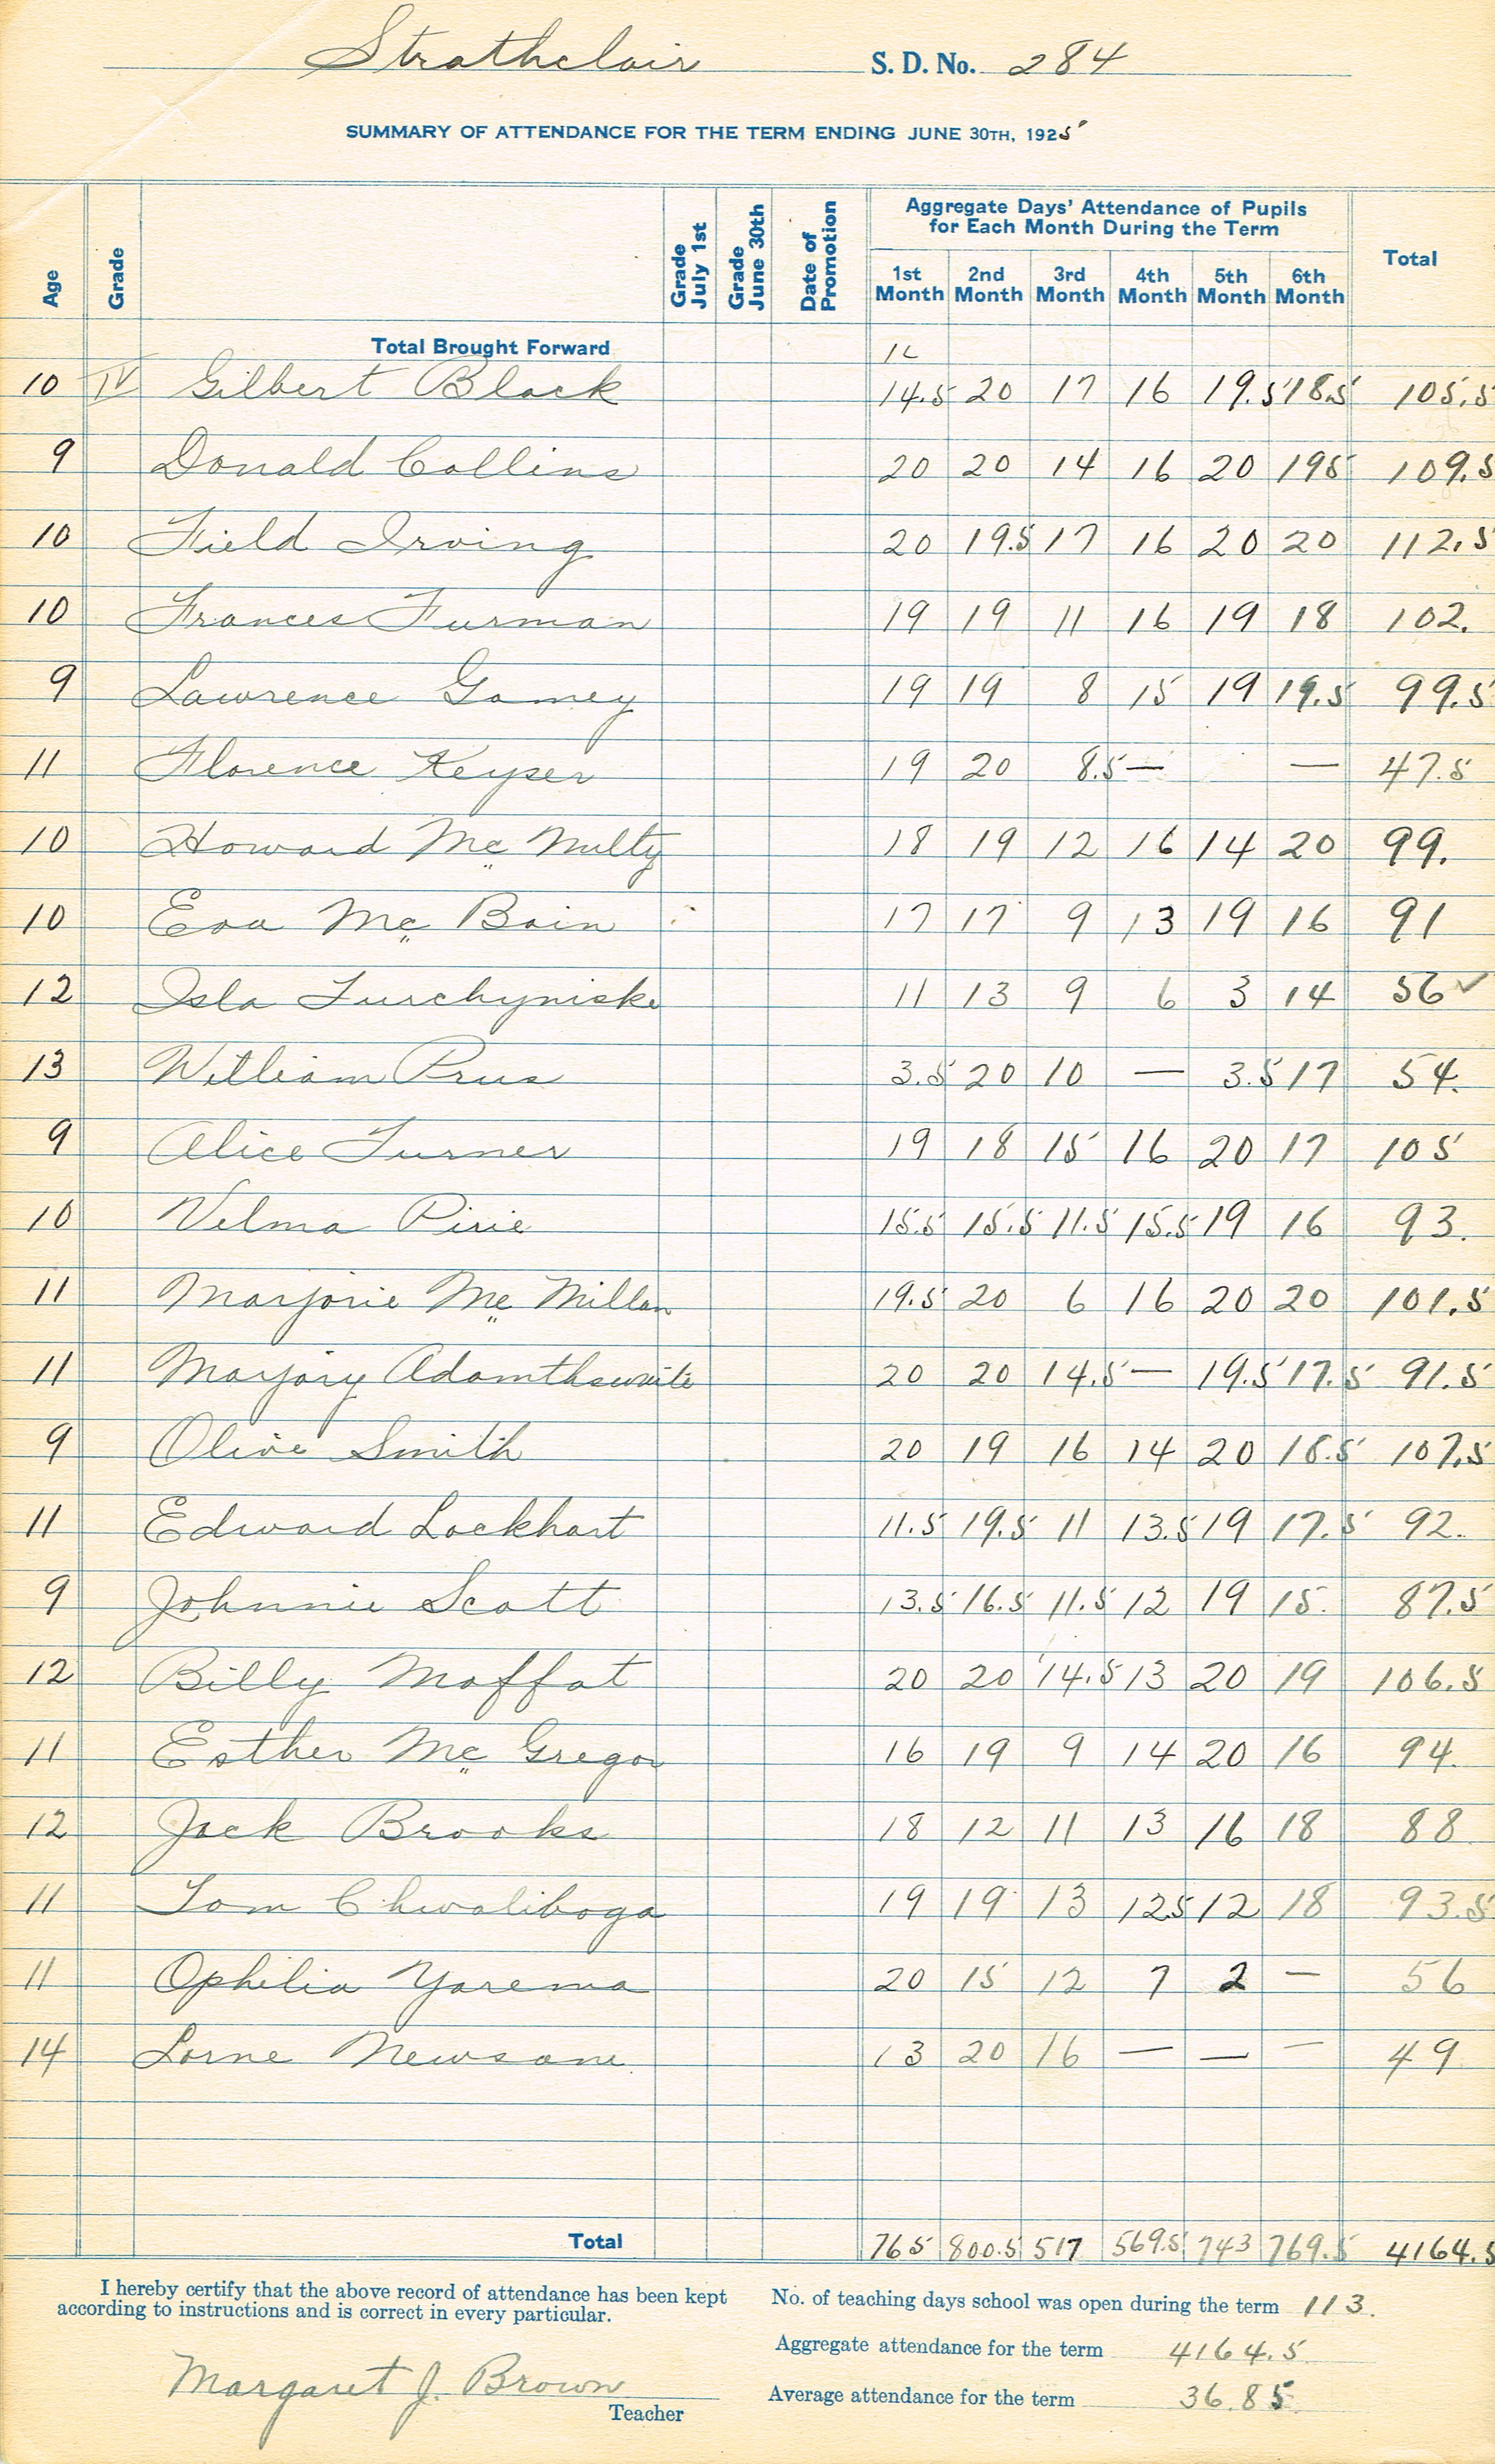 Strathclair S. D. No. 284
SUMMARY OF ATTENDANCE FOR THE TERM ENDING JUNE 30TH, 1925
Age Grade Grade July 1st Grade June 30th Date of Promotion Aggregate Days' Attendance of Pupils for Each Month During the Term Total
1st Month 2nd Month 3rd Month 4th Month 5th Month 6th Month
Total Brought Forward
10 IV Gilbert Black 14.5 20 17 16 19.5 18.5 105.5
9 Donald Collins 20 20 14 16 20 195 109.5
10 Field Irving 20 19.5 17 16 20 20 112.5
10 Frances Furman 19 19 11 16 19 18 102.
9 Lawrence Gamey 19 19 8 15 19 19.5 99.5
11 Florence Keyser 19 20 8.5 — — 47.5
10 Howard Mc Nulty 18 19 12 16 14 20 99.
10 Eva Mc Bain 17 17 9 13 19 16 91
12 Isla Turchyniske 11 13 9 6 3 14 56 ✓
13 William Prus 3.5 20 10 — 3.5 17 54.
9 Alice Turner 19 18 15 16 20 17 105
10 Velma Pirie 15.5 15.5 11.5 15.5 19 16 93.
11 Marjorie Mc Millan 19.5 20 6 16 20 20 101.5
11 Marjory Adamthewaite 20 20 14.5 — 19.5 17.5 91.5
9 Olive Smith 20 19 16 14 20 18.5 107.5
11 Edward Lockhart 11.5 19.5 11 13.5 19 17.5 92.
9 Johnnie Scott 13.5 16.5 11.5 12 19 15. 87.5
12 Billy Moffat 20 20 14.5 13 20 19 106.5
11 Esther Mc Gregor 16 19 9 14 20 16 94.
12 Jack Brooks 18 12 11 13 16 18 88
11 Tom Chwaliboga 19 19 13 125 12 18 93.5
11 Ophilia Yarema 20 15 12 7 2 — 56
14 Lorne Newsane 13 20 16 — — — 49
Total 765 800.5 517 569.5 743 769.5 4164.5
I hereby certify that the above record of attendance has been kept
according to instructions and is correct in every particular.
No. of teaching days school was open during the term 113.
Aggregate attendance for the term 4164.5
Average attendance for the term 36.85
Margaret J. Brown
Teacher